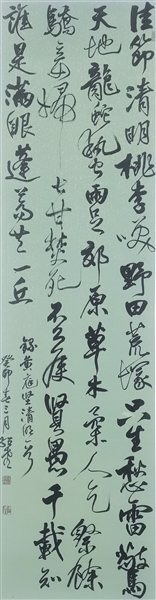 佳節清明桃李笑野田荒塚只生愁雷驚
天地龍蛇蟄雨足郊原草木柔人乞祭餘
驕妾婦士甘焚死不公侯賢愚千載知
誰是滿眼蓬蒿共一丘
錄黃庭堅清明一首
癸卯春三月